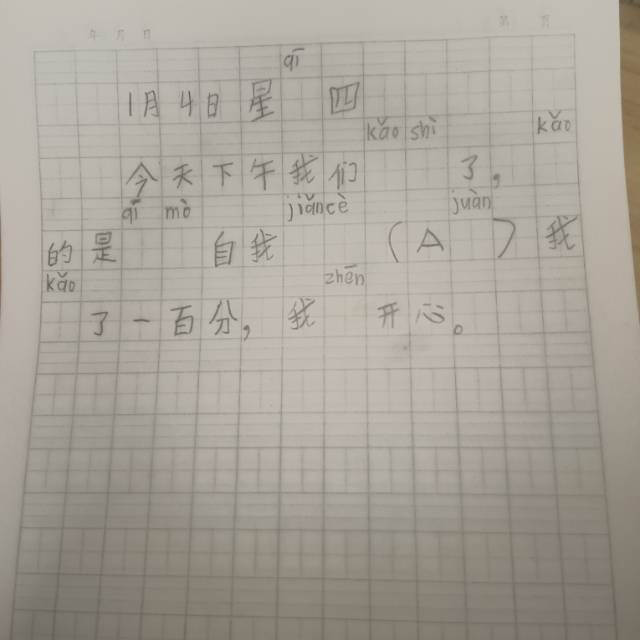 qī
1月4日星 四
kǎo shì kǎo
今天下午我们 了,
qī mò jiǎncè juàn
的是 自我 (A )我
kǎo zhēn
了一百分,我 开心。